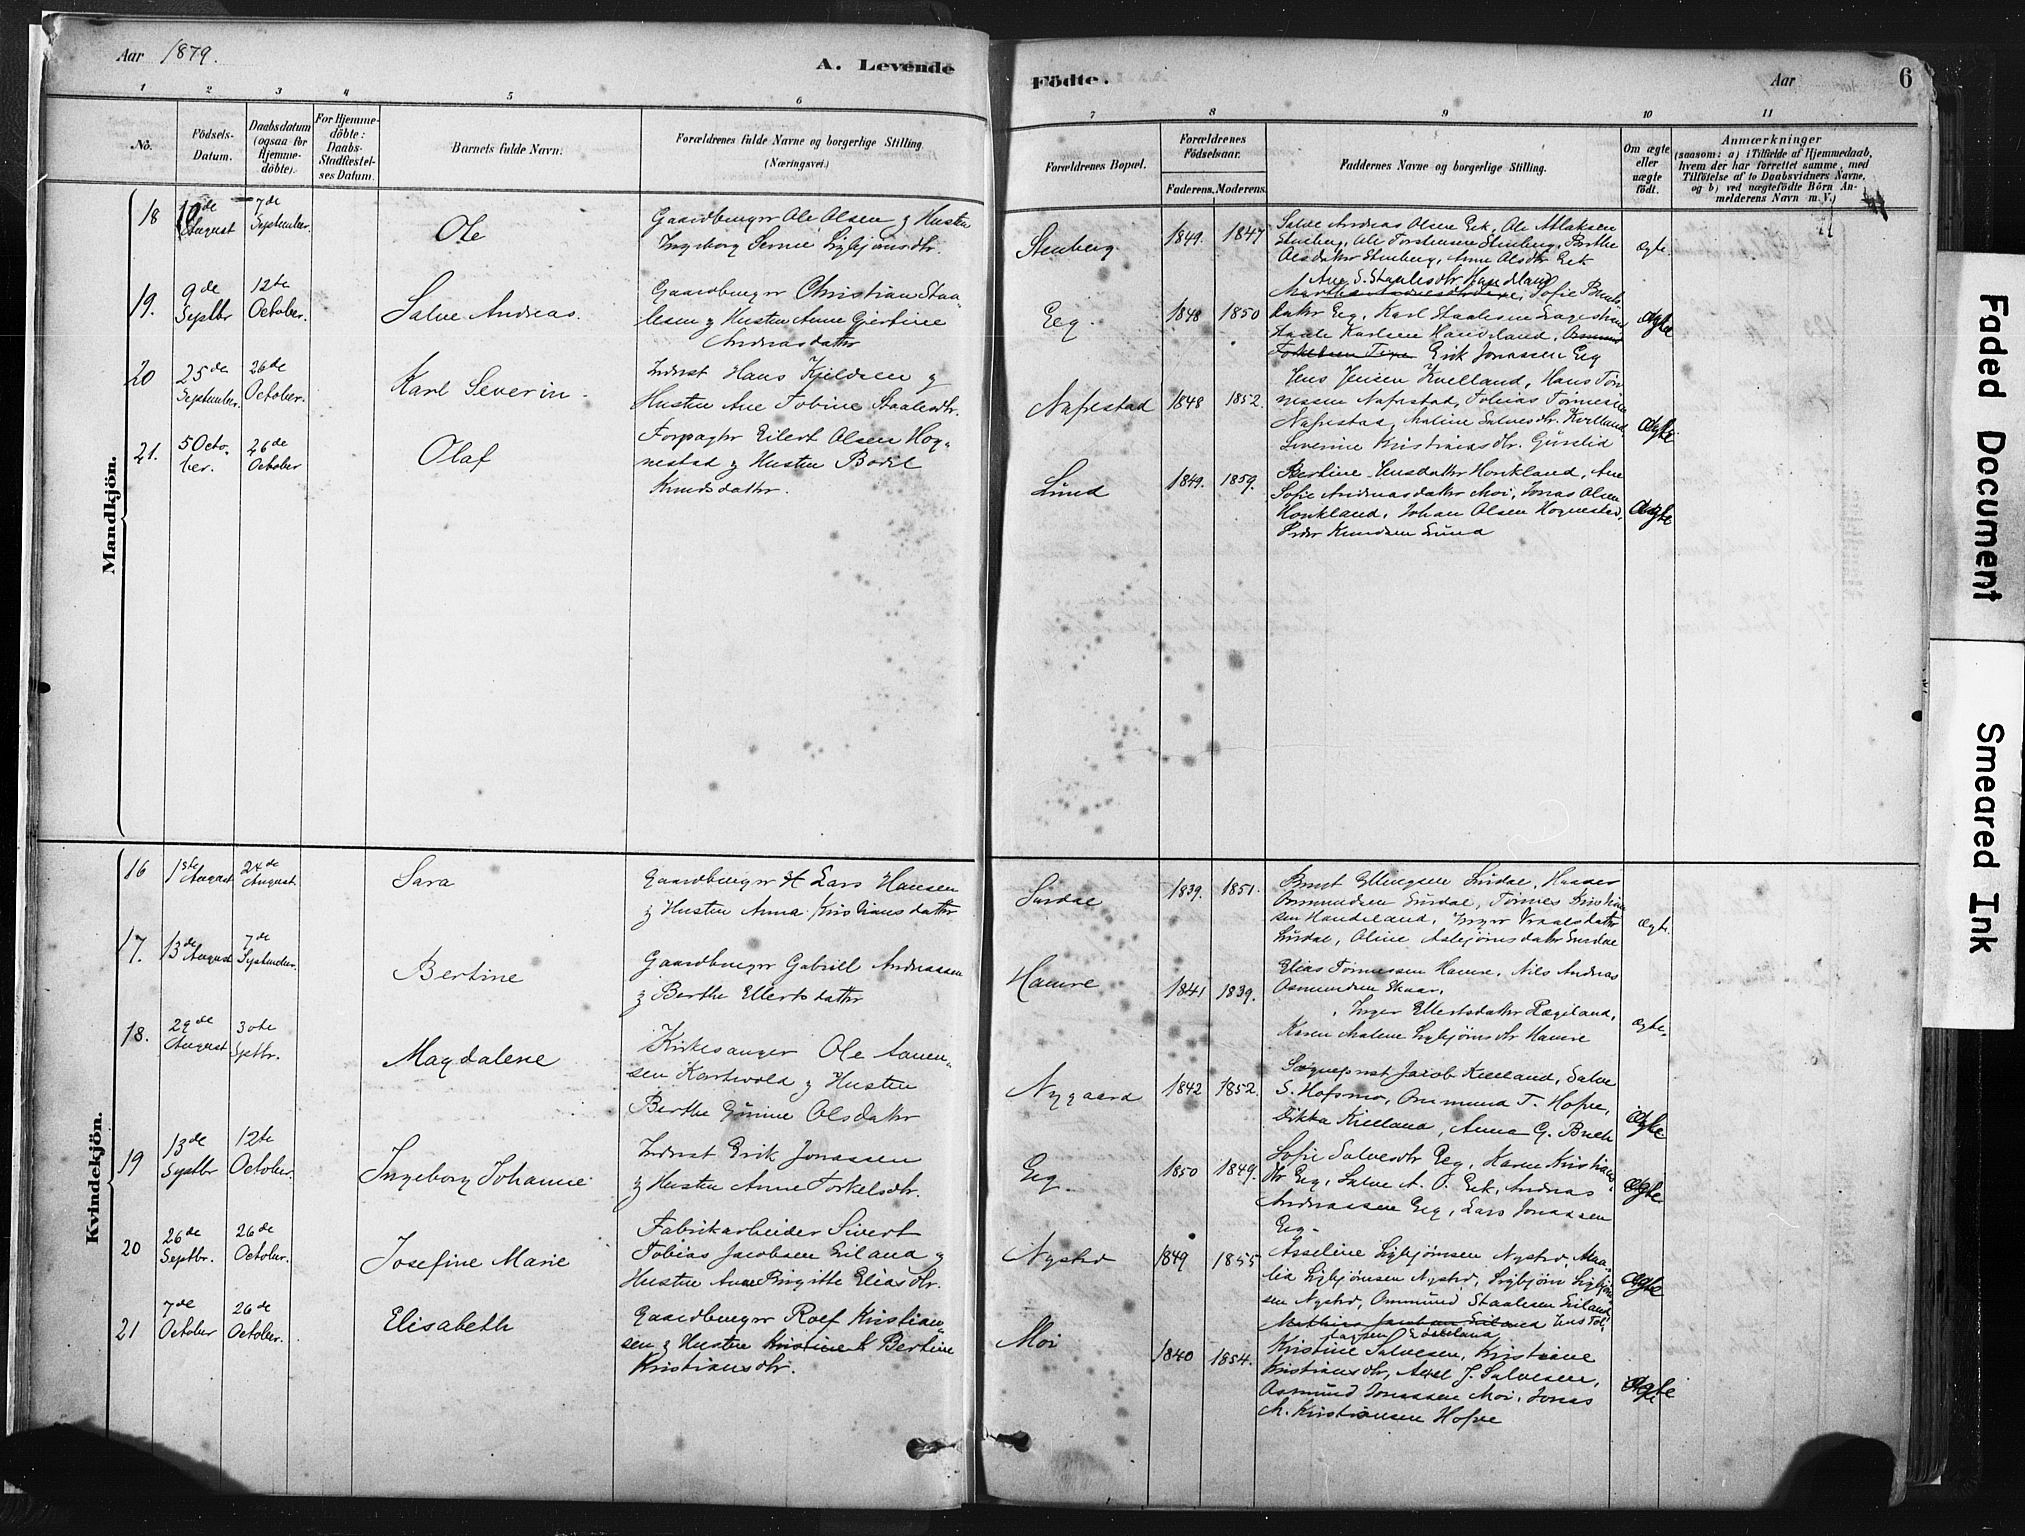 Aar 1879.
A. Levende
Födte.
Aar
6
1
2
3
4
5
6
7
8
9
10
11
No.
Födsels-
Datum.
Daabsdatum
(ogsaa for
Hjemme-
döbte).
For Hjemme-
döbte:
Daabs-
Stadfæstel-
ses Datum.
Barnets fulde Navn.
Forældrenes fulde Navne og borgerlige Stilling.
(Næringsvei.)
Forældrenes Bopæl.
Forældrenes
Födselsaar.
Faderens. Moderens.
Faddernes Navne og borgerlige Stilling.
Om ægte
eller
uægte
födt.
Anmærkninger
(saasom: a) i Tilfælde af Hjemmedaab,
hvem der har forrettet samme, med
Tilföielse af to Daabsvidners Navne,
og b) ved uægtefödte Börn An-
melderens Navn m. V.)
Mandkjön.
18
10de
August
7de
September.
Ole
Gaardbruger Ole Olsen g Hustru
Ingeborg Sigbjørnsdtr.
Stenberg
1849. 1847
Salve Andreas Olsen Eek, Ole Atlaksen
Stenberg, Ole Torstensen Stenberg, Berthe
Olsdatter Stenberg, Anne Olsdtr Eek
Ægte.
19.
9de
Septbr
12te
October.
Salve Andreas.
Gaardbruger Christian Staa-
lesen g Hustru Anne Gjertine
Andreasdatter
Eeg.
1848 1850
Ane S. Staalesdtr Handeland
Sofie Bents
datter Eeg, Karl Staalesen
Staale Karlsen Handeland,
Erik Jonassen Eeg
Ægte
20
25de
September.
26de
October.
Karl Severin.
Inderst Hans Kjeldsen g
Hustru Ane Tobine Staalesdtr.
Nafrestad
1848 1852.
Jens Jensen Kvelland, Hans Tøn-
nessen Nafrestad, Tobias Tønnesen
Nafrestad, Maline Salvesdtr. Kvelland,
Severine Kristiansdtr.
Ægte
21.
5 Octo-
ber.
26de
October
Olaf
Forpagter Eilert Olsen Hog-
nestad g Hustru Bodil
Knudsdatter.
Lund
1849. 1859.
Bertine Jensdatter Honkland, Ane
Sofie Andreasdatter Moi, Jonas Olsen
Honkland, Johan Olsen Hognestad,
Peder Knudsen Lund
Ægte
Kvindekjön.
16
1ste August
24de
August
Sara
Gaardbruger Lars Hansen
g Hustru Anna Kristiansdatter
Surdal
1839. 1851.
Bent Ellingsen Surdal,
Ommundsen Surdal, Tønnes Kristian
sen Handeland, Inger
Surdal, Oline Asbjørnsdatter Surdal
Ægte.
17.
13de August
7de
September.
Bertine
Gaardbruger Gabriel Andreassen
g Berthe Ellertsdatter
Hamre
1841 1839.
Elias Tønnessen Hamre, Nils Andreas
Osmundsen
Inger Ellertsdatter Rægeland,
Karen Malene Sigbjørnsdtr Hamre
Ægte.
18.
29de
August
30te
Septbr.
Magdalene
Kirkesanger Ole Aanen-
sen Kartevold g Hustru
Berthe Gurine Olsdatter
Nygaard
1842 1852.
Sogneprest Jacob Kielland, Salve
S. Hofsmo, Ommund T. Hofve,
Dikka Kielland, Anna G. Bueh
Ægte
19
13de
Septbr
12te
October.
Ingeborg Johanne
Inderst Erik Jonassen
g Hustru Anne Torkelsdtr.
Eeg
1850 1849.
Sofie Salvesdtr Eeg, Karen Kristians-
dtr Eeg, Salve A. O. Eek, Andreas
Andreassen Eeg, Lars Jonassen
Eeg-
Ægte
20
26de
Septbr.
26de
October.
Josefine Marie
Fabrikarbeider Sivert
Tobias Jacobsen Eiland g
Hustru Ane Birgitte Eliasdtr.
Nysted
1849 1855
Asseline Sigbjørnsen Nysted, Ama-
lia Sigbjørnsen Nysted, Sigbjørn Sigbjørn
sen Nysted, Ommund Staalesen Eiland,
Mathias Jacobsen Eiland Jens Tol-
lagsen Eideland
Ægte
21
7de
October
26de
October.
Elisabeth
Gaardbruger Rolf Kristian-
sen g Hustru Bertine
Kristiansdtr.
Moi
1840 1854.
Kristine Salvesen, Kristiane
Kristiansdtr, Axel J. Salvesen,
Osmund Jonassen Moi, Jonas
M. Kristiansen Hofve
Ægte
Faded Document
Smeared Ink